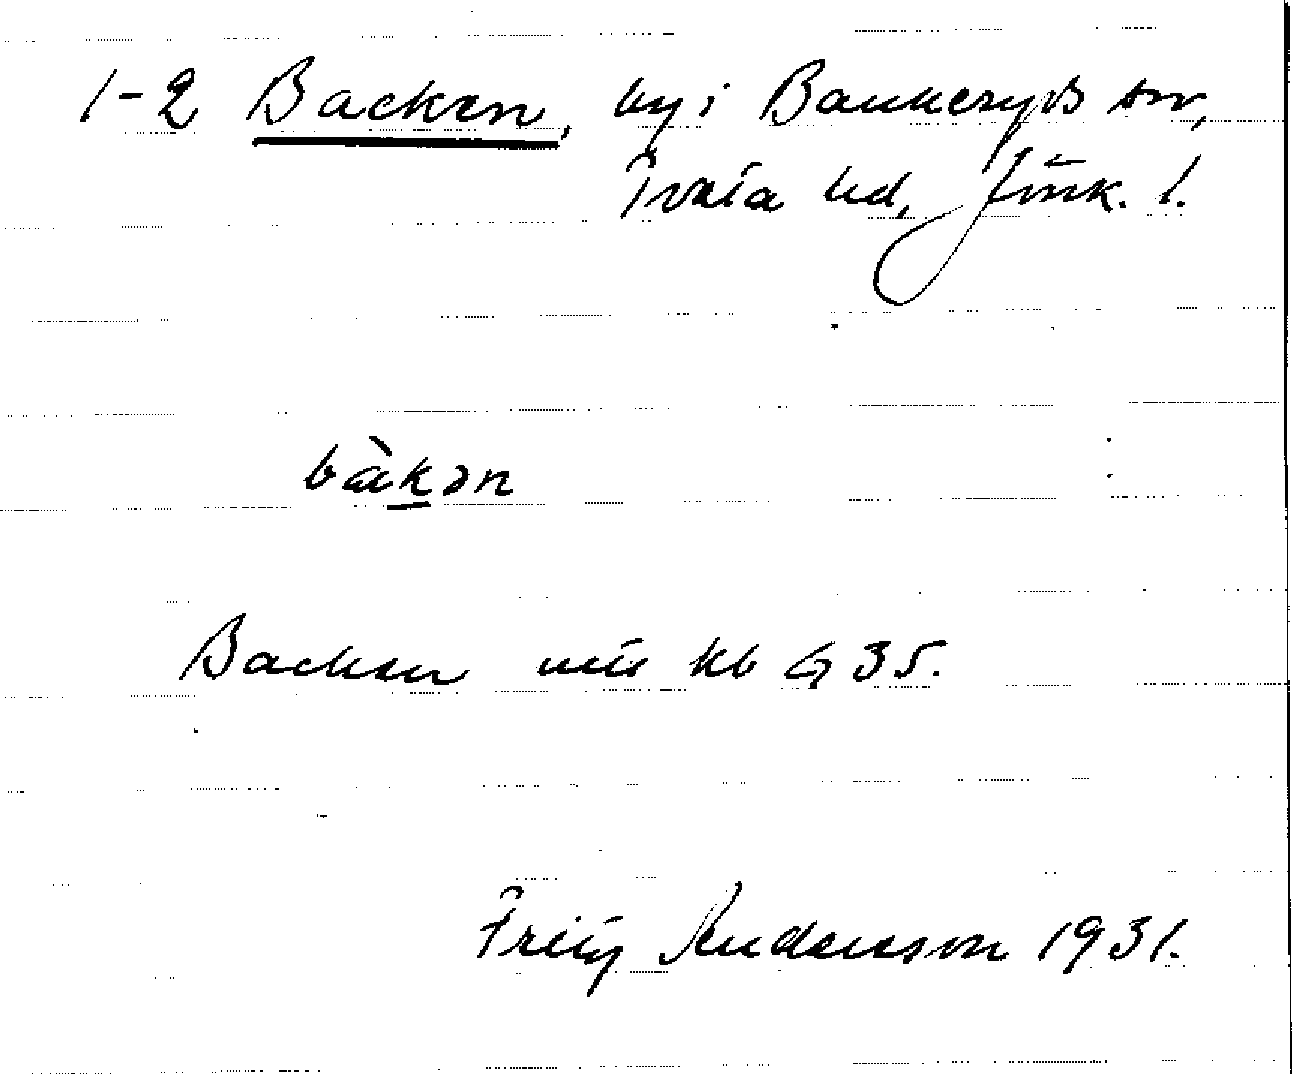 1-2 Backen, by i Bankeryds sn,
Tveta hd, Jönk. l.
bàkən
Backen mis kb G 35.
Fritz Andersson 1931.